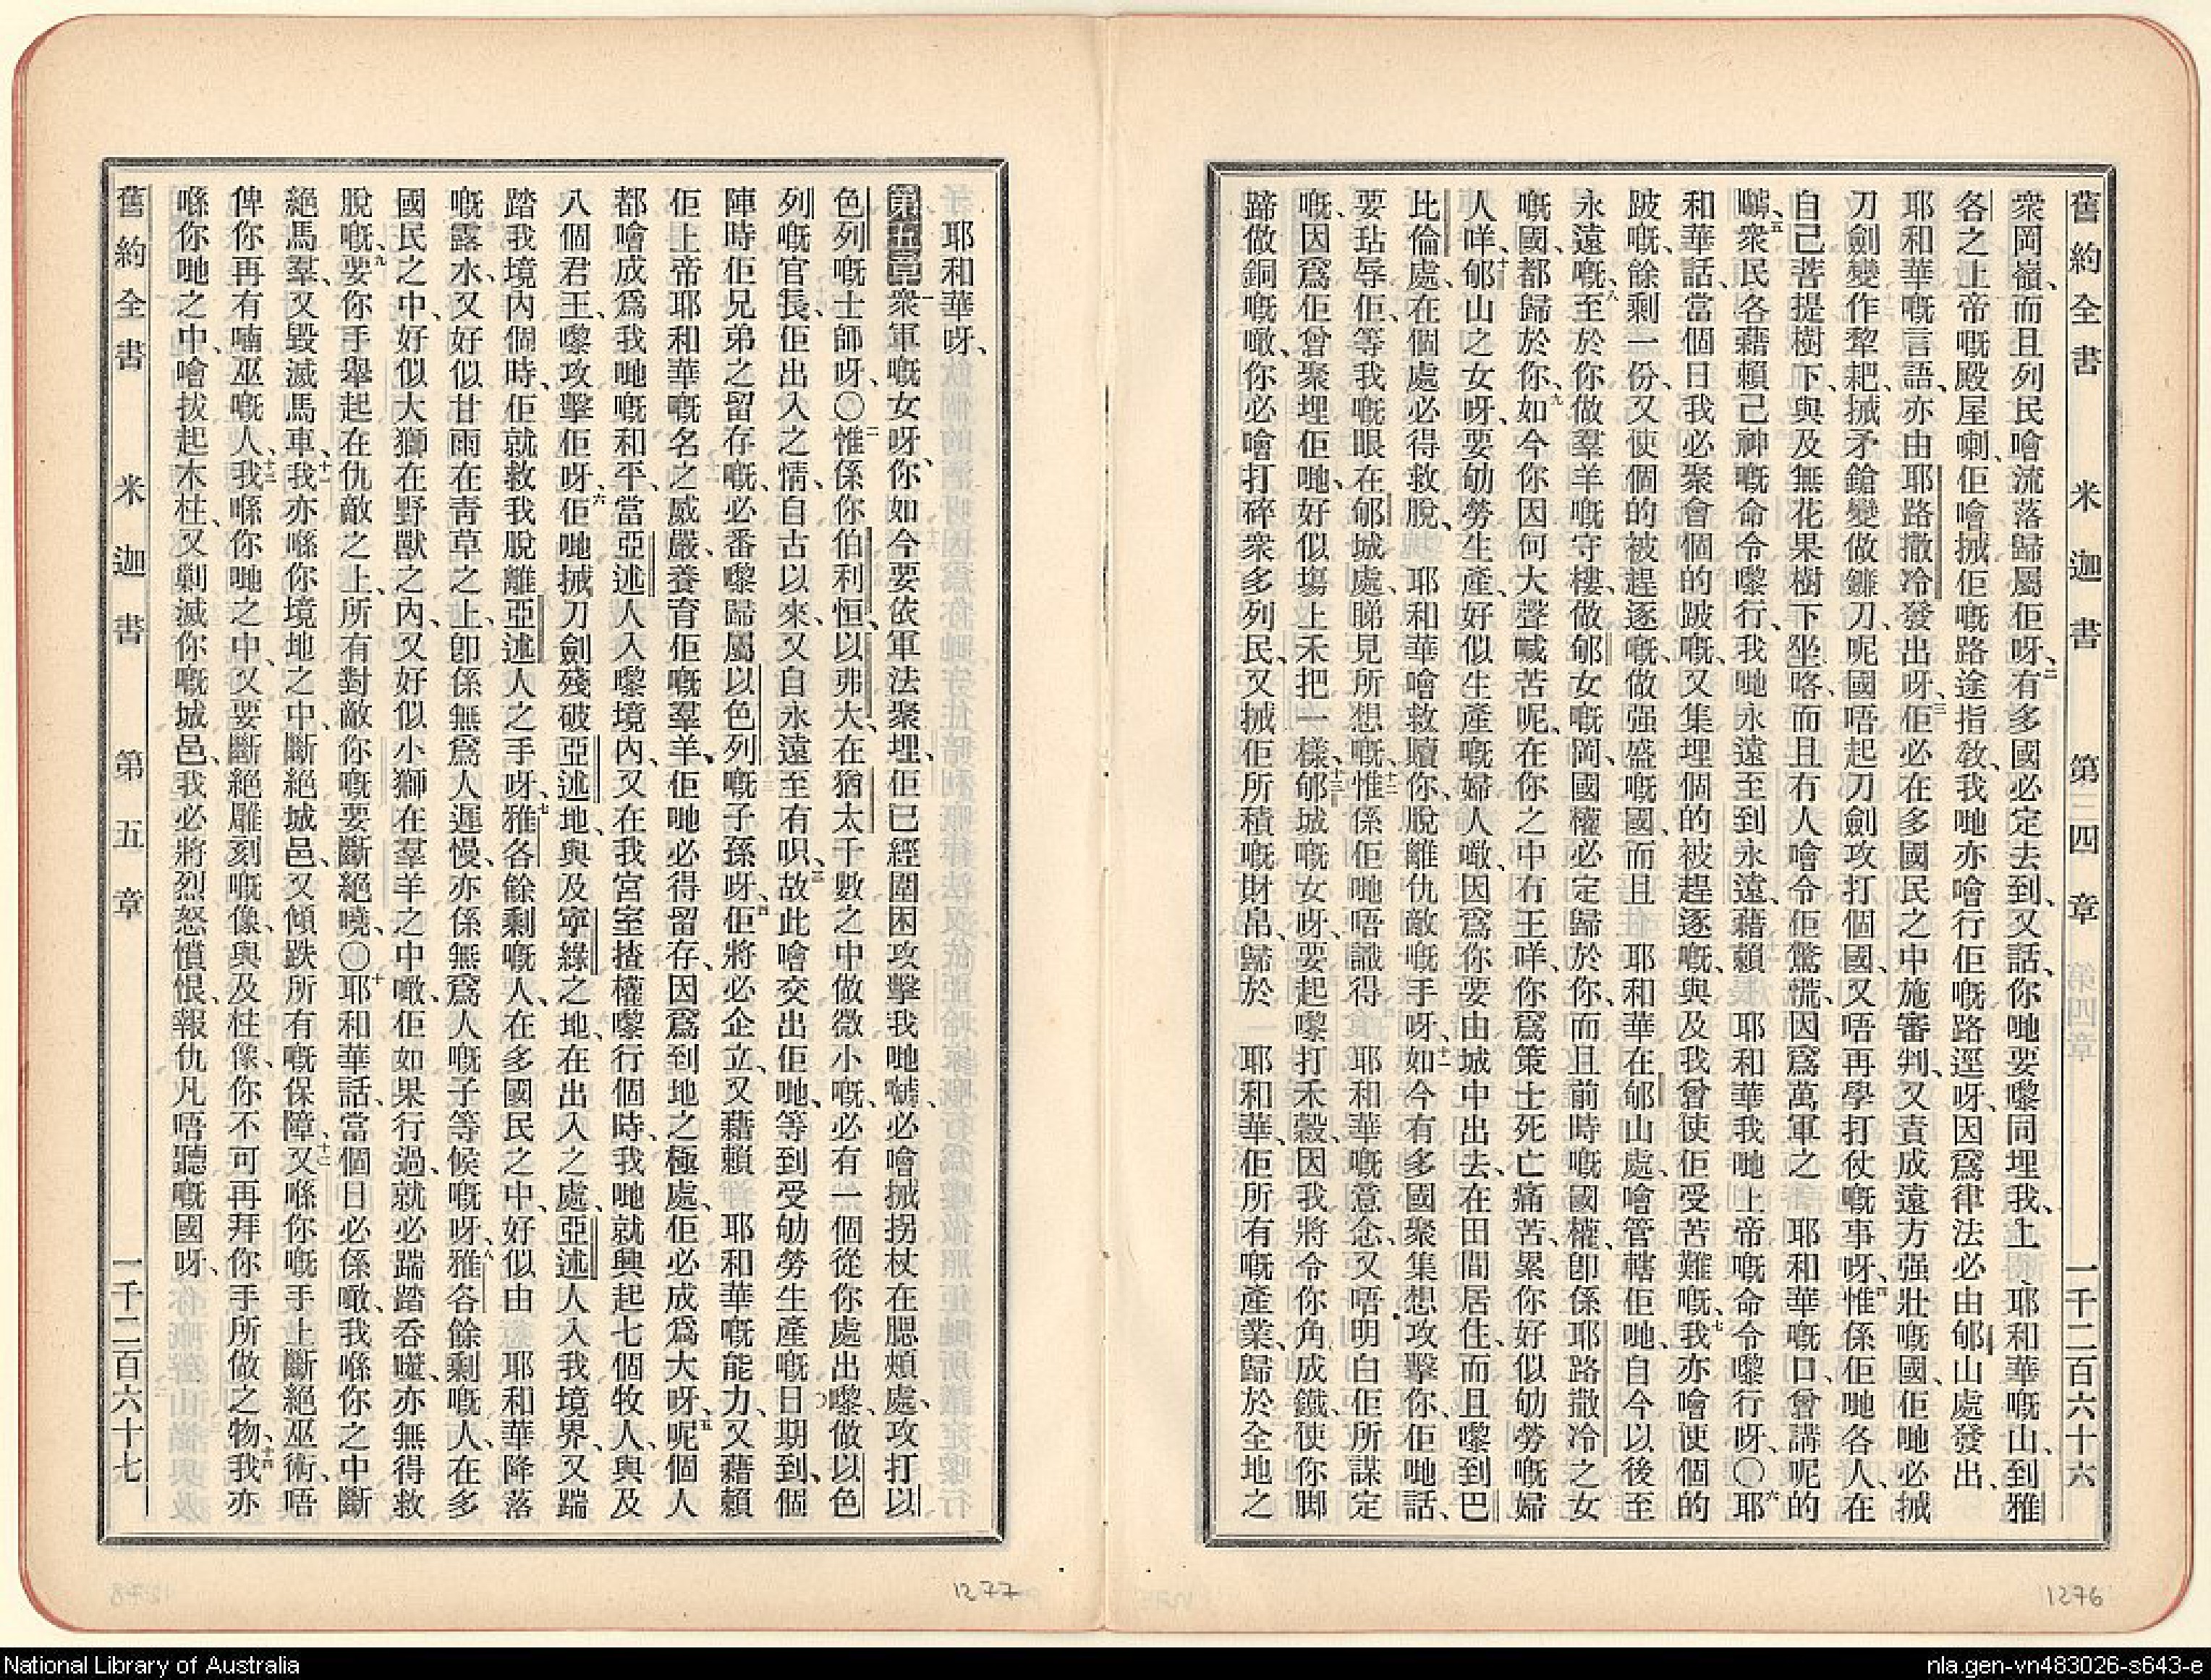 舊約全書 米迦書 第四章 一千二百六十六
衆岡嶺、而且列民噲流落歸屬佢呀、二有多國必定去到、又話、你哋要嚟同埋我、上 耶和華嘅山、到雅
各之上帝嘅殿屋喇、佢噲搣佢嘅路途指敎、我哋亦噲行佢嘅路逕呀、因爲律法必由郇山處發出、
耶和華嘅言語、亦由耶路撒冷發出呀、三佢必在多國民之中施審判、又責成遠方强壯嘅國、佢哋必搣
刀劍變作犂耙、搣矛鎗變做鐮刀、呢國唔起刀劍攻打個國、又唔再學打仗嘅事呀、四惟係佢哋各人、在
自己菩提樹下、與及無花果樹下坐咯、而且有人噲令佢驚慌、因爲萬軍之 耶和華嘅口、曾講呢的
嚹、五衆民各藉賴己神嘅命令嚟行、我哋永遠至到永遠、藉賴 耶和華我哋上帝嘅命令嚟行呀、〇六耶
和華話、當個日我必聚會個的跛嘅、又集埋個的被趕逐嘅、與及我曾使佢受苦難嘅、七我亦噲使個的
跛嘅、餘剩一份、又使個的被趕逐嘅、做强盛嘅國、而且 耶和華在郇山處、噲管轄佢哋、自今以後至
永遠嘅、八至於你做羣羊嘅守樓、做郇女嘅岡、國權必定歸於你、而且前時嘅國權、卽係耶路撒冷之女
嘅國、都歸於你、九如今你因何大聲喊苦呢、在你之中冇王咩、你爲策士死亡痛苦、累你好似劬勞嘅婦
人咩、十郇山之女呀、要劬勞生產、好似生產嘅婦人噉、因爲你要由城中出去、在田間居住、而且嚟到巴
比倫處、在個處必得救脫、 耶和華噲救贖你、脫離仇敵嘅手呀、十一如今有多國聚集想攻擊你、佢哋話、
要玷辱佢、等我嘅眼在郇城處、睇見所想嘅、十二惟係佢哋唔識得 耶和華嘅意念、又唔明白佢所謀定
嘅、因爲佢曾聚埋佢哋、好似塲上禾把一樣、十三郇城嘅女呀、要起嚟打禾穀、因我將令你角成鐵、使你脚
蹄做銅嘅噉、你必噲打碎衆多列民、又搣佢所積嘅財帛、歸於 耶和華、佢所有嘅產業、歸於全地之
1276
耶和華呀、
第五章 一衆軍嘅女呀、你如今要依軍法聚埋、佢已經圍困攻擊我哋嚹、必噲搣拐杖在腮頰處、攻打以
色列嘅士師呀、〇二惟係你伯利恒以弗大、在猶太千數之中做微小嘅、必有一個從你處出嚟、做以色
列嘅官長、佢出入之情、自古以來、又自永遠至有呮、三故此噲交出佢哋、等到受劬勞生產嘅日期到、個
陣時佢兄弟之留存嘅、必番嚟歸屬以色列嘅子孫呀、四佢將必企立、又藉賴 耶和華嘅能力、又藉賴
佢上帝耶和華嘅名之威嚴、養育佢嘅羣羊、佢哋必得留存、因爲到地之極處、佢必成爲大呀、五呢個人
都噲成爲我哋嘅和平、當亞述人入嚟境內、又在我宮室揸權嚟行個時、我哋就興起七個牧人、與及
八個君王、嚟攻擊佢呀、六佢哋搣刀劍殘破亞述地、與及寧綠之地、在出入之處、亞述人入我境界、又踹
踏我境內個時、佢就救我脫離亞述人之手呀、七雅各餘剩嘅人、在多國民之中、好似由 耶和華降落
嘅露水、又好似甘雨在靑草之上、卽係無爲人遲慢、亦係無爲人嘅子等候嘅呀、八雅各餘剩嘅人、在多
國民之中、好似大獅在野獸之內、又好似小獅在羣羊之中噉、佢如果行過、就必踹踏吞噬、亦無得救
脫嘅、九要你手舉起在仇敵之上、所有對敵你嘅、要斷絕曉、〇十耶和華話、當個日必係噉、我喺你之中斷
絕馬羣、又毀滅馬車、十一我亦喺你境地之中、斷絕城邑、又傾跌所有嘅保障、十二又喺你嘅手上斷絕巫術、唔
俾你再有喃巫嘅人、十三我喺你哋之中、又要斷絕雕刻嘅像、與及柱像、你不可再拜你手所做之物、十四我亦
喺你哋之中、噲拔起木柱、又剿滅你嘅城邑、我必將烈怒憤恨、報仇凡唔聽嘅國呀、
舊約全書 米迦書 第五章 一千二百六十七
1277
National Library of Australia
nla.gen-vn483026-s643-e